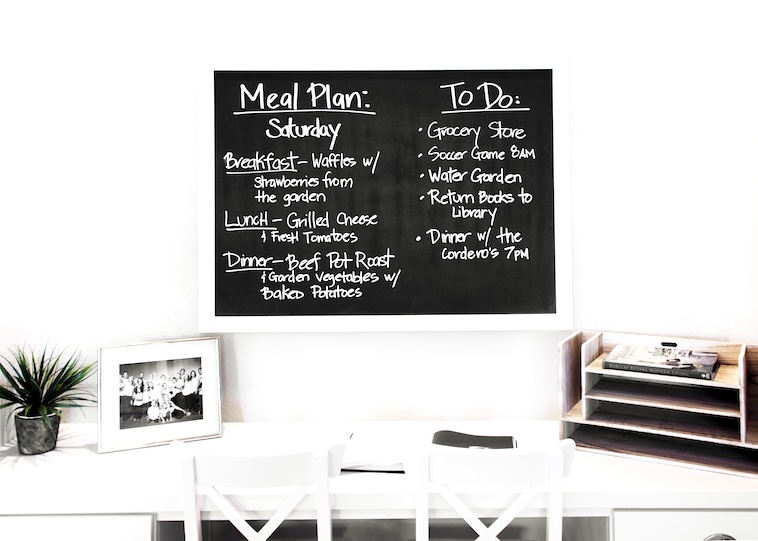 Meal Plan:
Saturday
Breakfast- Waffles w/
strawberries from
the garden
Lunch - Grilled Cheese
& Fresh Tomatoes
Dinner- Beef Pot Roast
& Garden Vegetables w/
Baked Potatoes
To Do:
• Grocery Store
• Soccer Game 8AM
• Water Garden
• Return Books to
Library
• Dinner w/ the
Cordevo's 7PM